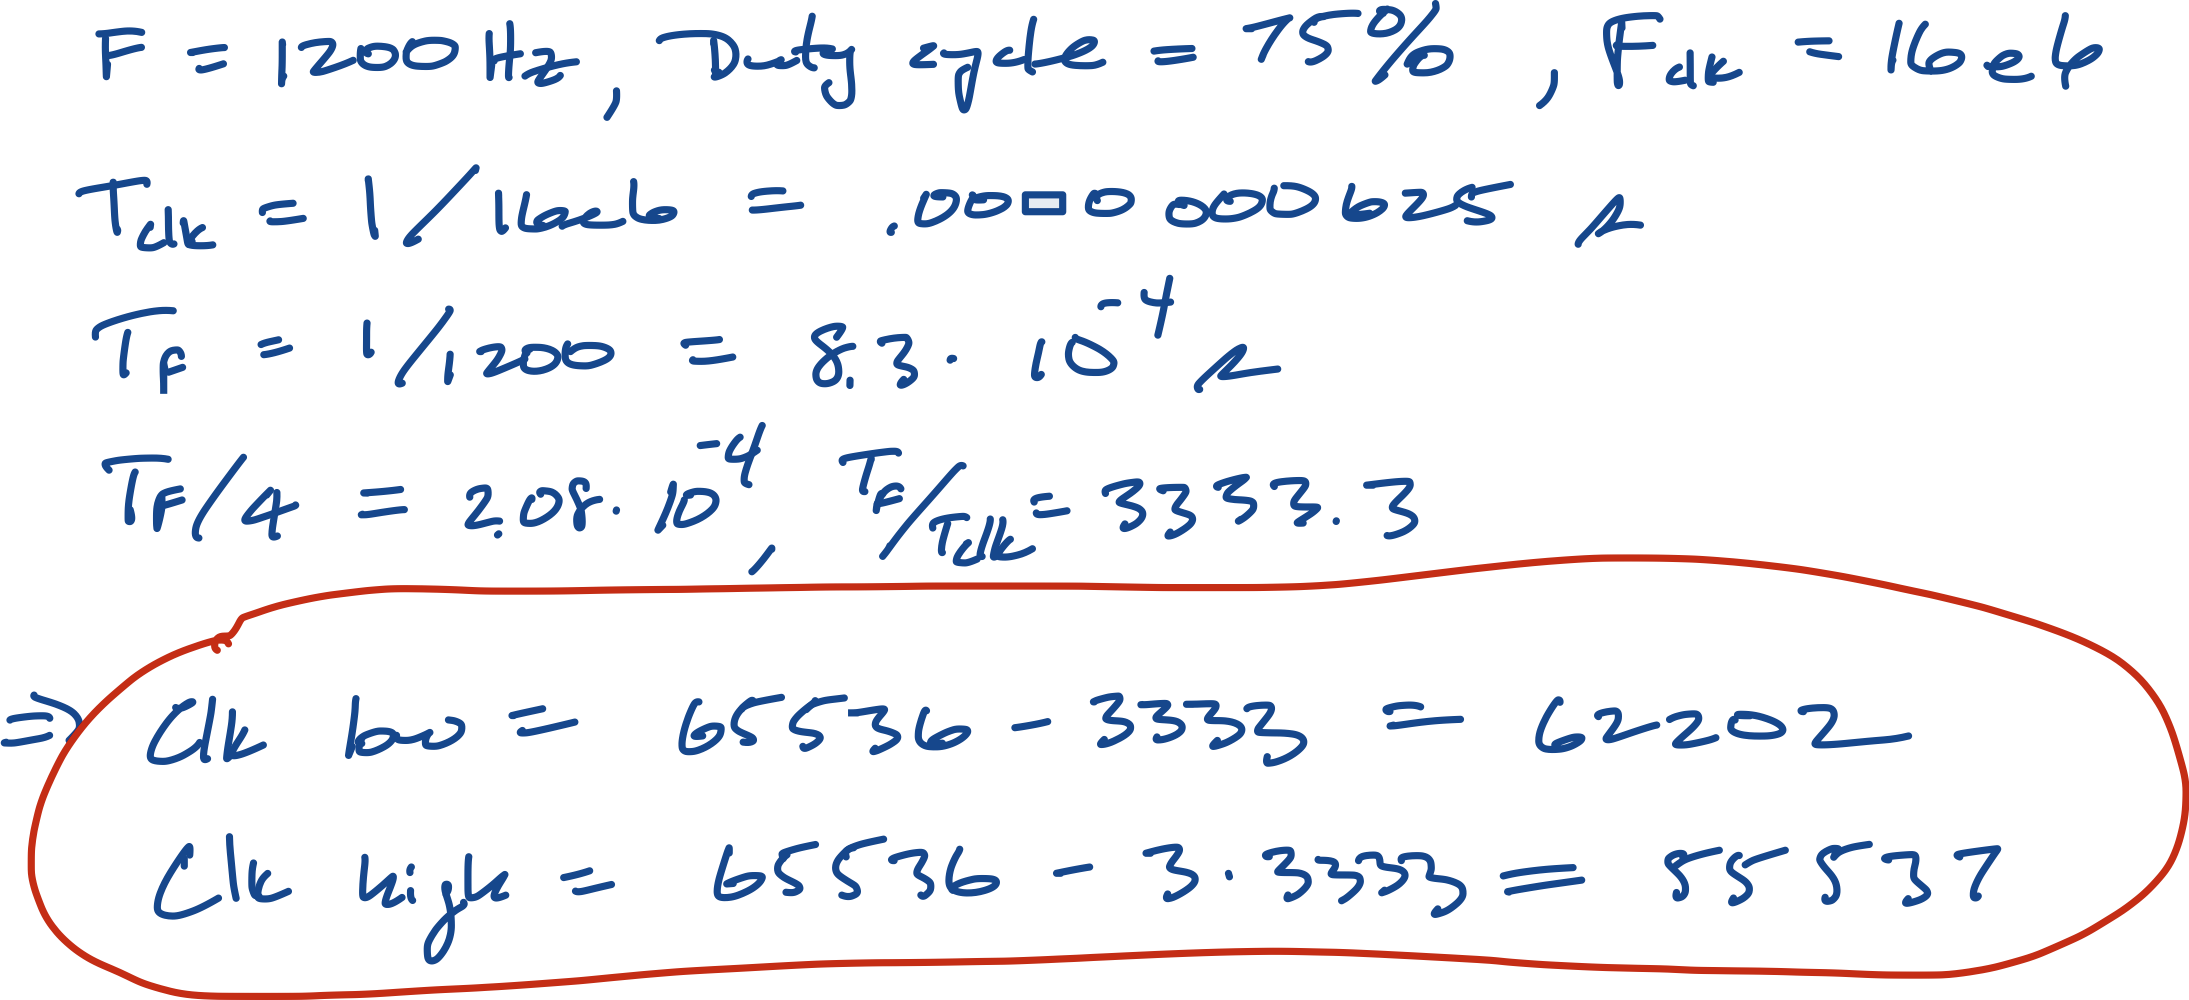 F = 1200 Hz, Duty cycle = 75%, Fclk = 16e6
Tclk = 1/16e6 = .0000000625 s
TF = 1/1200 = 8.3 · 10^-4 s
TF/4 = 2.08 · 10^-4, TF/Tclk = 3333.3
⇒ Clk low = 65536 - 3333 = 62202
Clk high = 65536 - 3 · 3333 = 55537